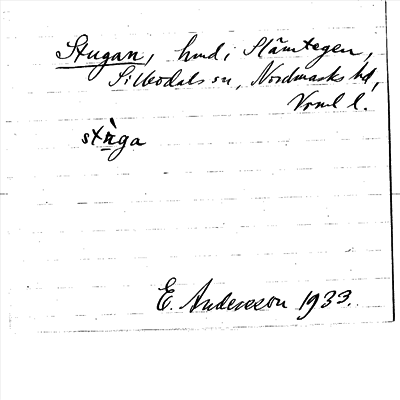 Stugan, hmd i Slämtegen,
Silbodals sn, Nordmarks hd,
Vrml l.
stùga
E. Andersson 1933.